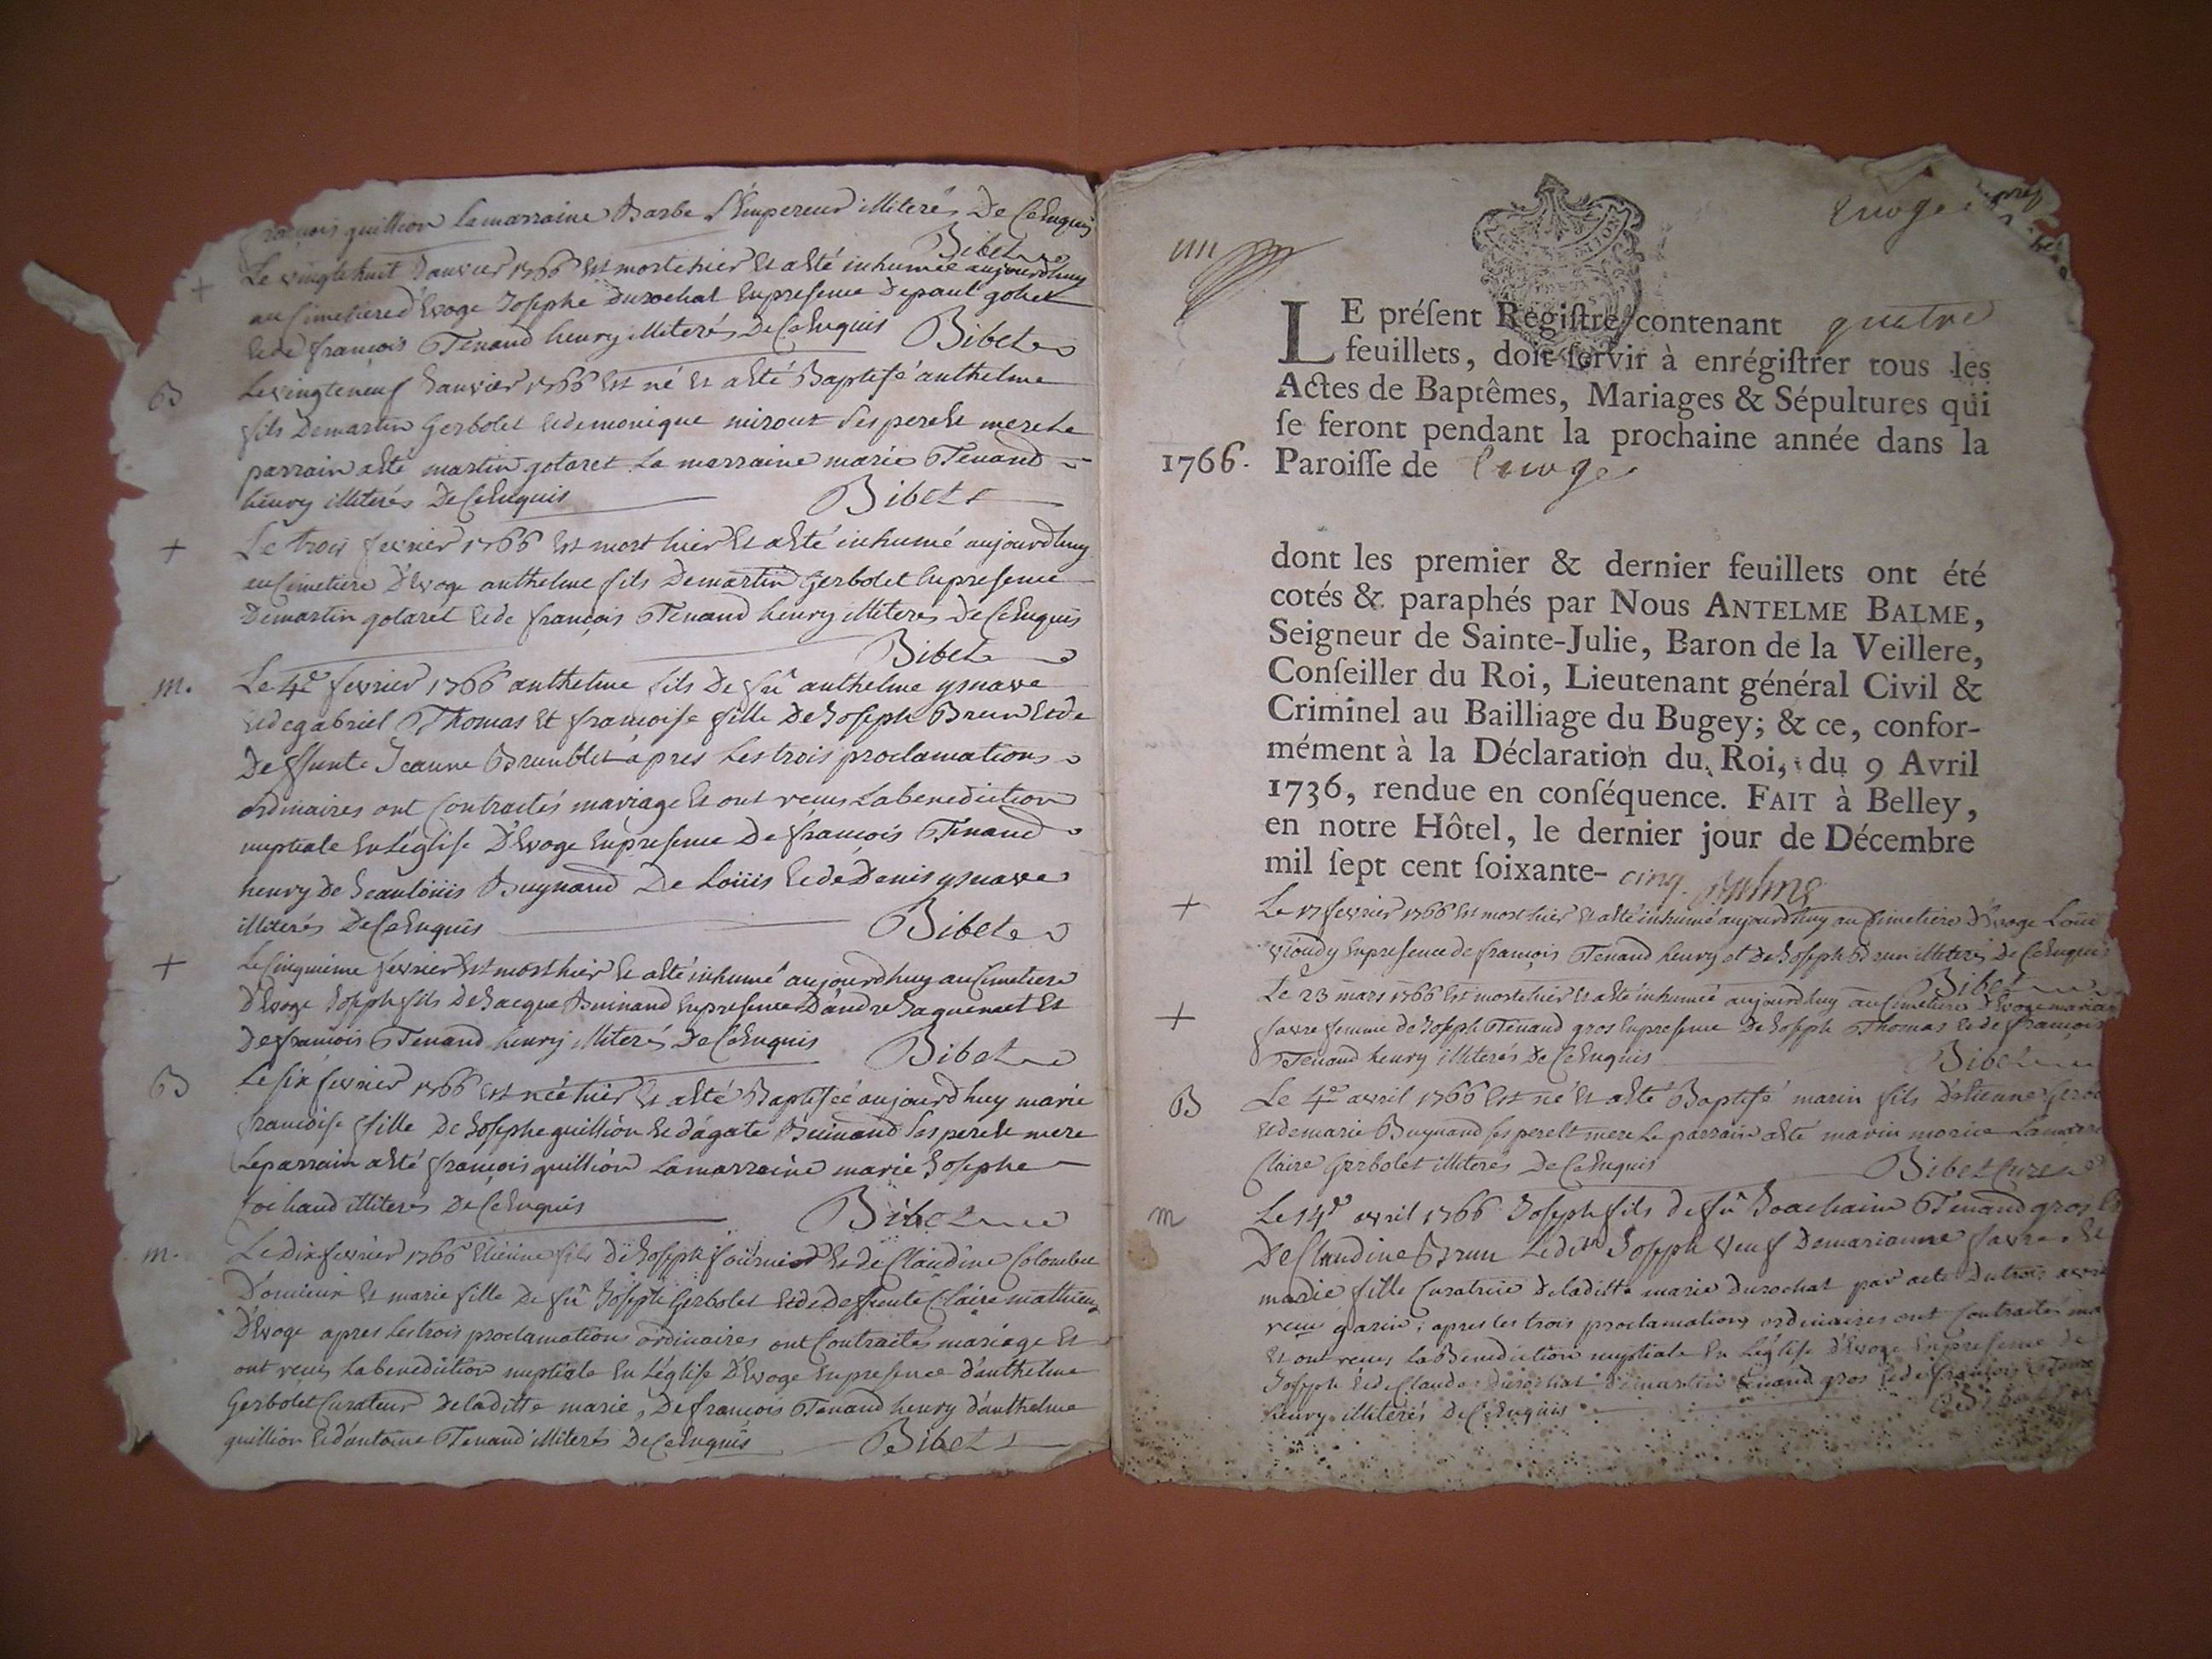 françois guillion la marraine Barbe L'Empereur illiterés De Ce Enquis
Bibet
+ Le vingthuit Janvier 1766 Est morte hier Et a Eté inhumée aujourdhuy
au Cimetiere d'Evoge Josephe Durochat En presence De paul gohet
Et de françois Tenand henry illiterés De Ce Enquis Bibet
B Le vingteneuf Janvier 1766 Est né Et a Eté Baptisé anthelme
fils De martin Gerbolet Et de monique mirout ses pere Et mere Le
parrain a Eté martin golaret La marraine marie Tenand
henry illiterés De Ce Enquis Bibet
+ Le trois fevrier 1766 Est mort hier Et a Eté inhumé aujourdhuy
au Cimetiere D'Evoge anthelme fils De martin Gerbolet En presence
De martin golaret Et de françois Tenand henry illiterés De Ce Enquis
Bibet
m. Le 4e fevrier 1766 anthelme fils De fû anthelme ysnave
Et de gabriel Thomas Et françoise fille De Joseph Brun Et de
Deffunte Jeanne Brunblet apres Les trois proclamations
ordinaires ont Contractés mariage Et ont reçus La benediction
nuptiale En L'église D'Evoge En presence De françois Tenand
henry de Jeanloüis Buynand De Loüis Et de Denis ysnave
illiterés De Ce Enquis Bibet
+ Le Cinquieme fevrier Est mort hier Et a Eté inhumé aujourdhuy au Cimetiere
D'Evoge Joseph fils De Jacque Buinand En presence D'andre Jaquemet Et
De françois Tenand henry illiterés De Ce Enquis Bibet
B Le six fevrier 1766 Est née hier Et a Eté Baptisée aujourdhuy marie
françoise fille De Josephe guillion Et d'agate Buinand ses pere Et mere
Le parrain a Eté françois guillion La marraine marie Josephe
Cochaud illiterés De Ce Enquis Bibet
m. Le dix fevrier 1766 Etienne fils De Joseph fournier Et de Claudine Colombe
D'oncieux Et marie fille De fû Joseph Gerbolet Et de Deffunte Claire mathieu
D'Evoge apres Les trois proclamations ordinaires ont Contractés mariage Et
ont reçus La benediction nuptiale En L'église D'Evoge En presence d'anthelme
Gerbolet Curateur De laditte marie, De françois Tenand henry d'anthelme
guillion Et d'antoine Tenand illiterés De Ce Enquis Bibet
Evoge
LE préſent Regiſtre contenant quatre
feuillets, doit ſervir à enrégiſtrer tous les
Actes de Baptêmes, Mariages & Sépultures qui
ſe feront pendant la prochaine année dans la
1766. Paroiſſe de Evoge
dont les premier & dernier feuillets ont été
cotés & paraphés par Nous ANTELME BALME,
Seigneur de Sainte-Julie, Baron de la Veillere,
Conſeiller du Roi, Lieutenant général Civil &
Criminel au Bailliage du Bugey; & ce, confor-
mément à la Déclaration du Roi, du 9 Avril
1736, rendue en conſéquence. FAIT à Belley,
en notre Hôtel, le dernier jour de Décembre
mil ſept cent ſoixante- cinq. Balme
+ Le 17 fevrier 1766 Est mort hier Et a Eté inhumé aujourdhuy au Cimetiere D'Evoge
vioudy En presence de françois Tenand henry et De Joseph Brun illiterés De Ce Enquis
Bibet
+ Le 23 mars 1766 Est morte hier Et a Eté inhumée aujourdhuy au Cimetiere D'Evoge
favre femme de Joseph Tenand gros En presence De Joseph Thomas Et de françois
Tenand henry illiterés De Ce Enquis Bibet
B Le 4e avril 1766 Est né Et a Eté Baptisé marin fils D'etienne
Et de marie Buynand ses pere Et mere Le parrain a Eté marin morice
Claire Gerbolet illiterés De Ce Enquis Bibet Curé
m Le 14e avril 1766 Joseph fils de fû Joachain Tenand gros
De Claudine Brun Ledit Joseph veuf De marianne favre Et
marie fille Curatrice De laditte marie Durochat par acte Du trois
reçu garin; apres les trois proclamations ordinaires ont Contractés
Et ont reçus La Benediction nuptiale En L'église D'Evoge En presence De
Joseph Et de Claude Durochat De martin Tenand gros Et de françois
henry illiterés De Ce Enquis